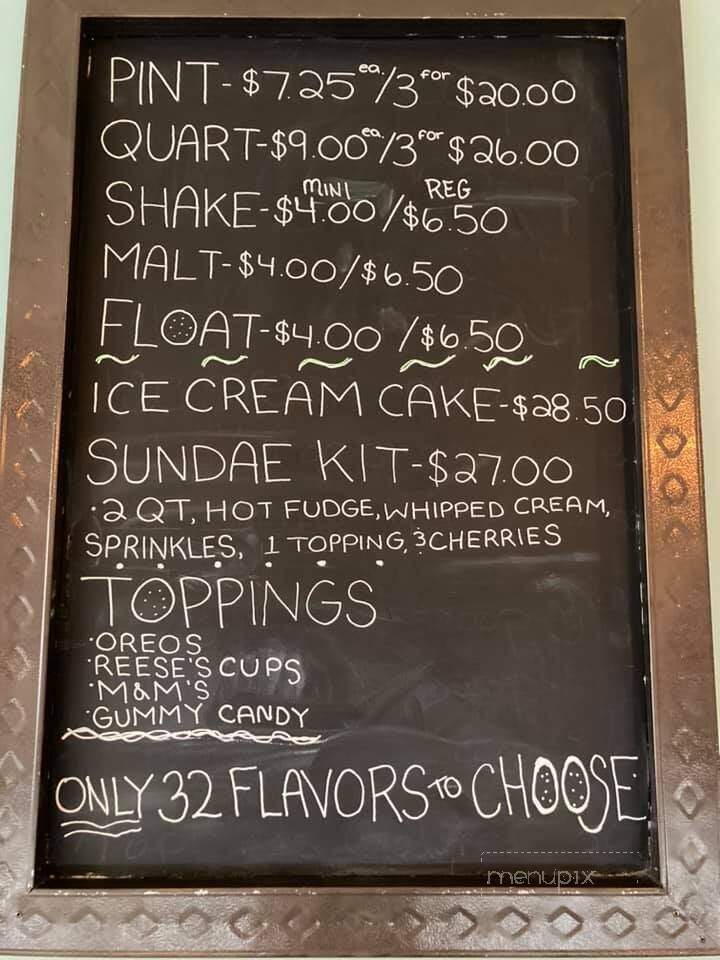 PINT-$7.25 ea./3 for $20.00
QUART-$9.00 ea./3 for $26.00
MINI REG
SHAKE-$4.00/$6.50
MALT-$4.00/$6.50
FLOAT-$4.00/$6.50
ICE CREAM CAKE-$28.50
SUNDAE KIT-$27.00
·2 QT, HOT FUDGE, WHIPPED CREAM,
SPRINKLES, 1 TOPPING, 3 CHERRIES
TOPPINGS
·OREOS
·REESE'S CUPS
·M&M'S
·GUMMY CANDY
ONLY 32 FLAVORS TO CHOOSE
menupix